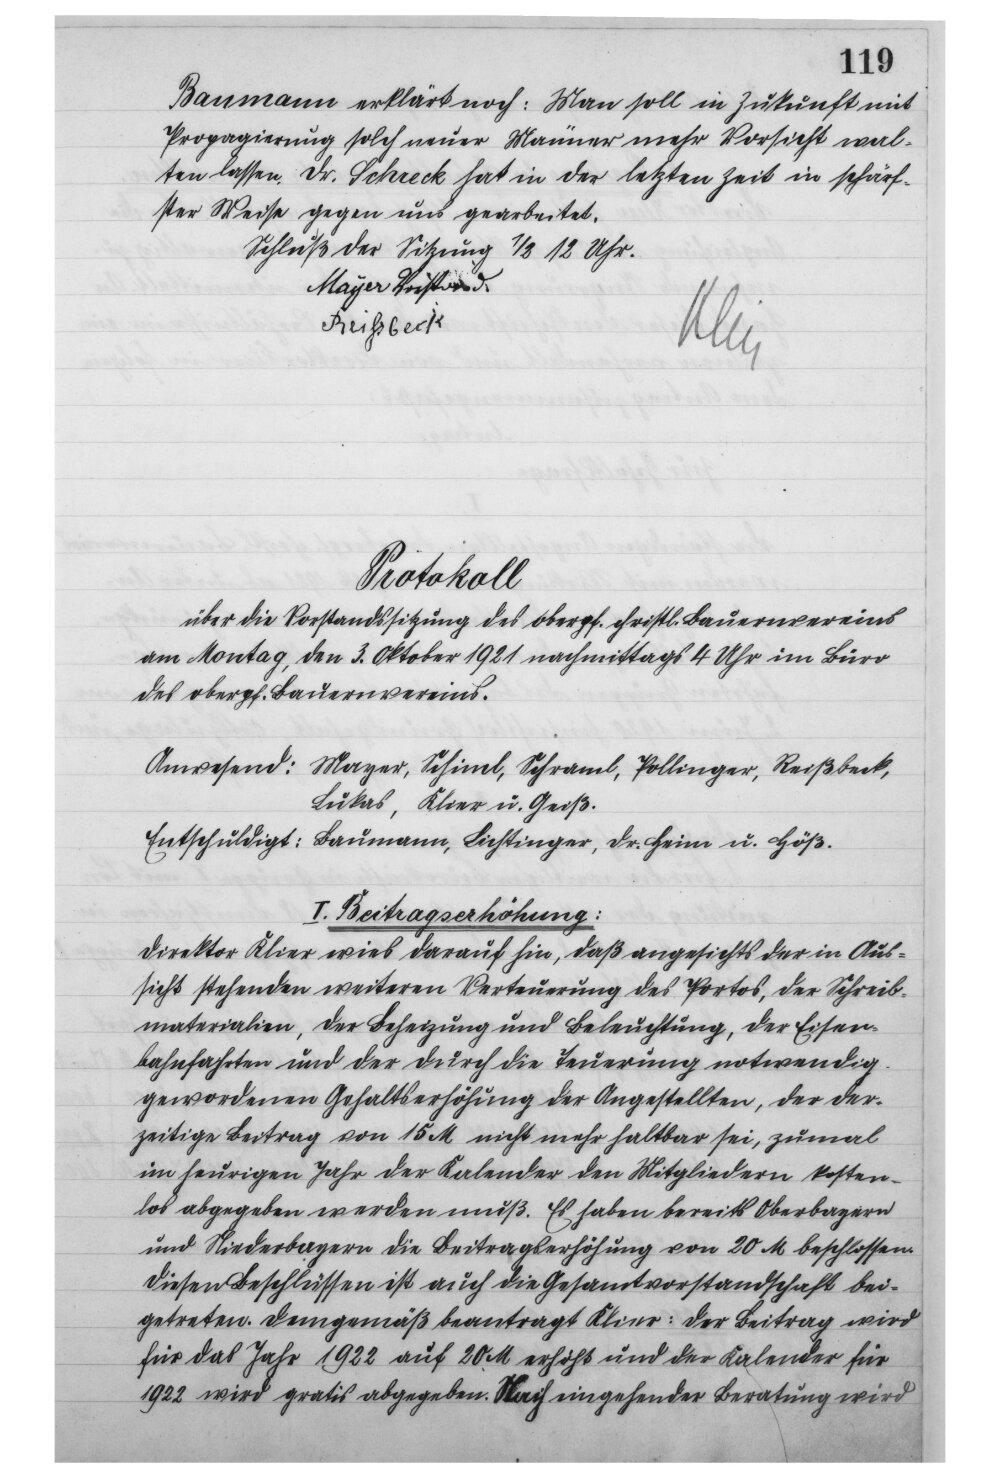 119
Baumann erklärt noch: Man soll in Zukunft mit
Propagierung solch neuer Männer mehr Vorsicht wal-
ten lassen. Dr. Schreck hat in der letzten Zeit in schärf-
ster Weise gegen uns gearbeitet.
Schluß der Sitzung 1/2 12 Uhr.
Mayer Vorstand.
Reißbeck
Protokoll
über die Vorstandssitzung des oberpf. christl. Bauernvereins
am Montag, den 3. Oktober 1921 nachmittags 4 Uhr im Büro
des oberpf. Bauernvereins.
Anwesend: Mayer, Schiml, Schraml, Pollinger, Reißbeck,
Lukas, Klier u. Geiß.
Entschuldigt: Baumann, Lichtinger, Dr. Heim u. Höß.
I. Beitragserhöhung:
Direktor Klier wies darauf hin, daß angesichts der in Aus-
sicht stehenden weiteren Verteuerung des Portos, der Schreib-
materialien, der Beheizung und Beleuchtung, der Eisen-
bahnfahrten und der durch die Teuerung notwendig
gewordenen Gehaltserhöhung der Angestellten, der der-
zeitige Beitrag von 15 M nicht mehr haltbar sei, zumal
im heurigen Jahr der Kalender den Mitgliedern kosten-
los abgegeben werden muß. Es haben bereits Oberbayern
und Niederbayern die Beitragserhöhung von 20 M beschlossen.
Diesen Beschlüssen ist auch die Gesamtvorstandschaft bei-
getreten. Demgemäß beantragt Klier: Der Beitrag wird
für das Jahr 1922 auf 20 M erhöht und der Kalender für
1922 wird gratis abgegeben. Nach eingehender Beratung wird